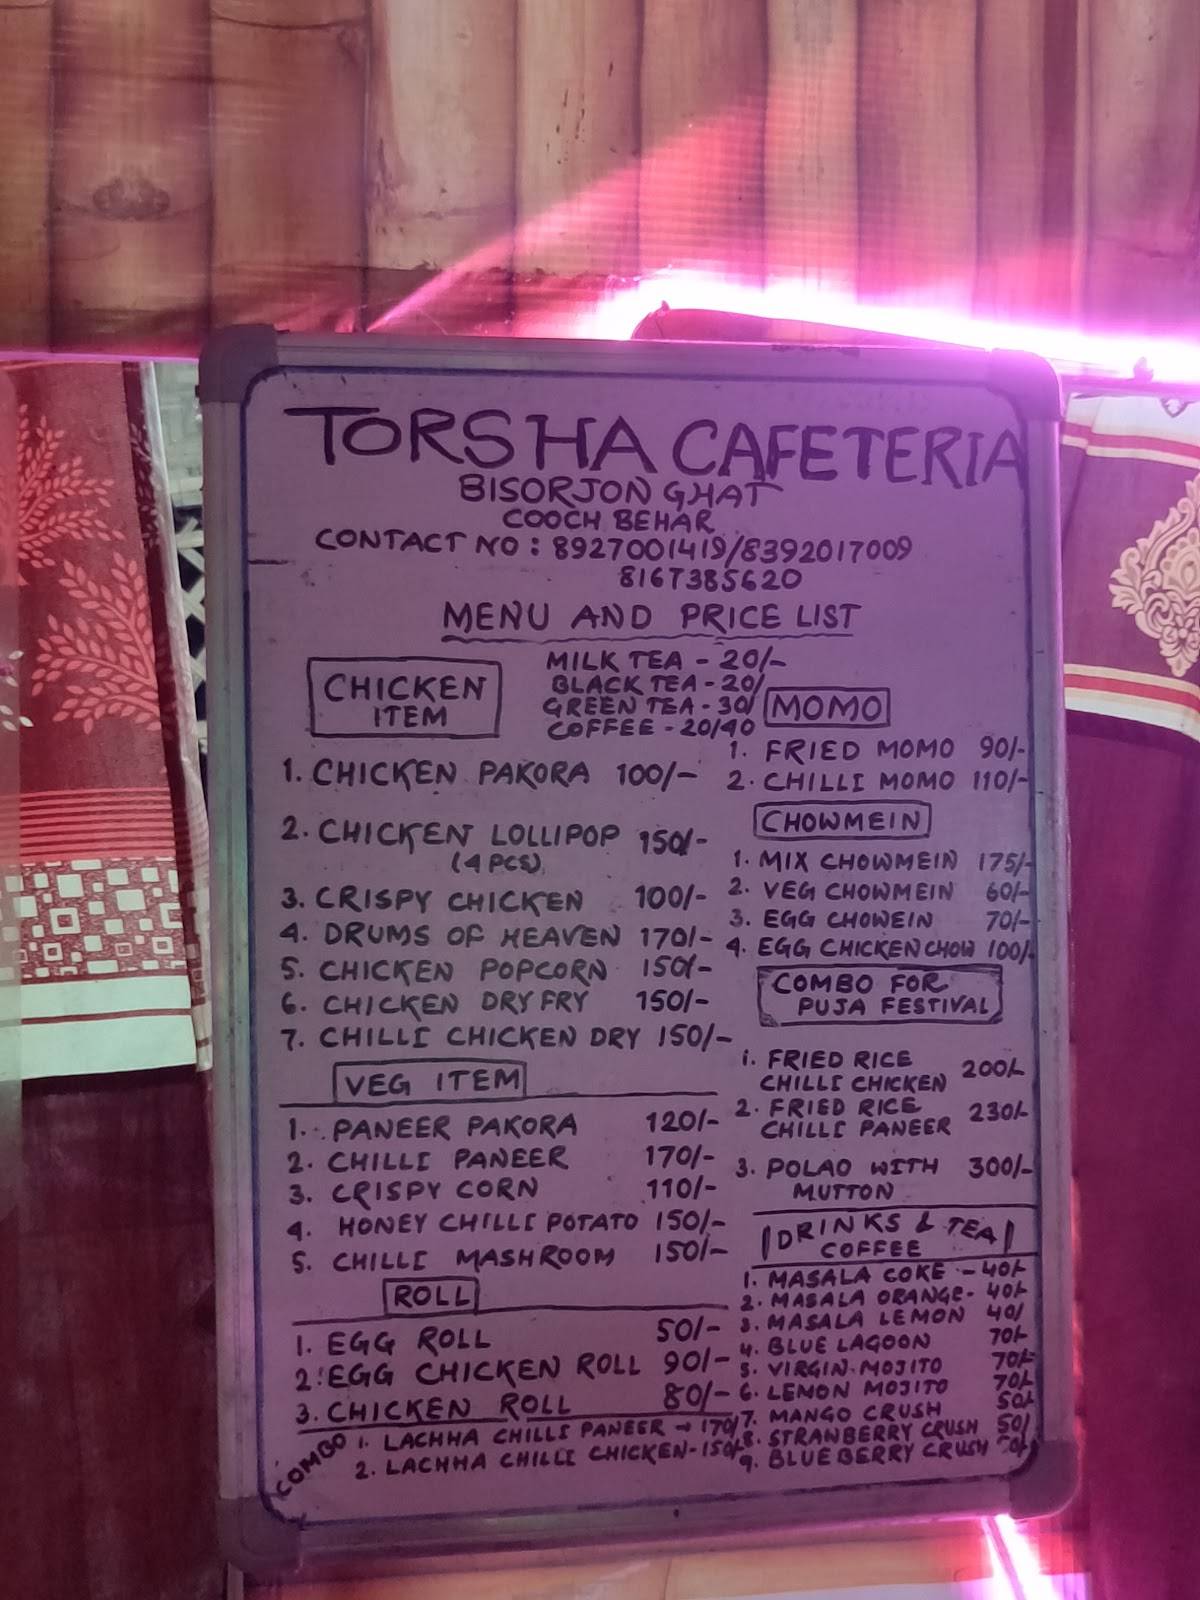 TORSHA CAFETERIA
BISORJON GHAT
COOCH BEHAR
CONTACT NO : 8927001419/8392017009
8167385620
MENU AND PRICE LIST
MILK TEA - 20/-
BLACK TEA - 20/
GREEN TEA - 30/
COFFEE - 20/40
CHICKEN
ITEM
1. CHICKEN PAKORA 100/-
2. CHICKEN LOLLIPOP 150/-
(4 PCS)
3. CRISPY CHICKEN 100/-
4. DRUMS OF HEAVEN 170/-
5. CHICKEN POPCORN 150/-
6. CHICKEN DRY FRY 150/-
7. CHILLI CHICKEN DRY 150/-
VEG ITEM
1. PANEER PAKORA 120/-
2. CHILLI PANEER 170/-
3. CRISPY CORN 110/-
4. HONEY CHILLI POTATO 150/-
5. CHILLI MASHROOM 150/-
ROLL
1. EGG ROLL 50/-
2. EGG CHICKEN ROLL 90/-
3. CHICKEN ROLL 80/-
COMBO
1. LACHHA CHILLI PANEER → 170/
2. LACHHA CHILLI CHICKEN - 150/-
MOMO
1. FRIED MOMO 90/-
2. CHILLI MOMO 110/-
CHOWMEIN
1. MIX CHOWMEIN 175/-
2. VEG CHOWMEIN 60/-
3. EGG CHOWEIN 70/-
4. EGG CHICKEN CHOW 100/-
COMBO FOR
PUJA FESTIVAL
1. FRIED RICE
CHILLI CHICKEN 200/-
2. FRIED RICE
CHILLI PANEER 230/-
3. POLAO WITH 300/-
MUTTON
DRINKS & TEA
COFFEE
1. MASALA COKE - 40/-
2. MASALA ORANGE - 40/-
3. MASALA LEMON 40/
4. BLUE LAGOON 70/-
5. VIRGIN MOJITO 70/-
6. LEMON MOJITO 70/-
7. MANGO CRUSH 50/-
8. STRANBERRY CRUSH 50/
9. BLUE BERRY CRUSH